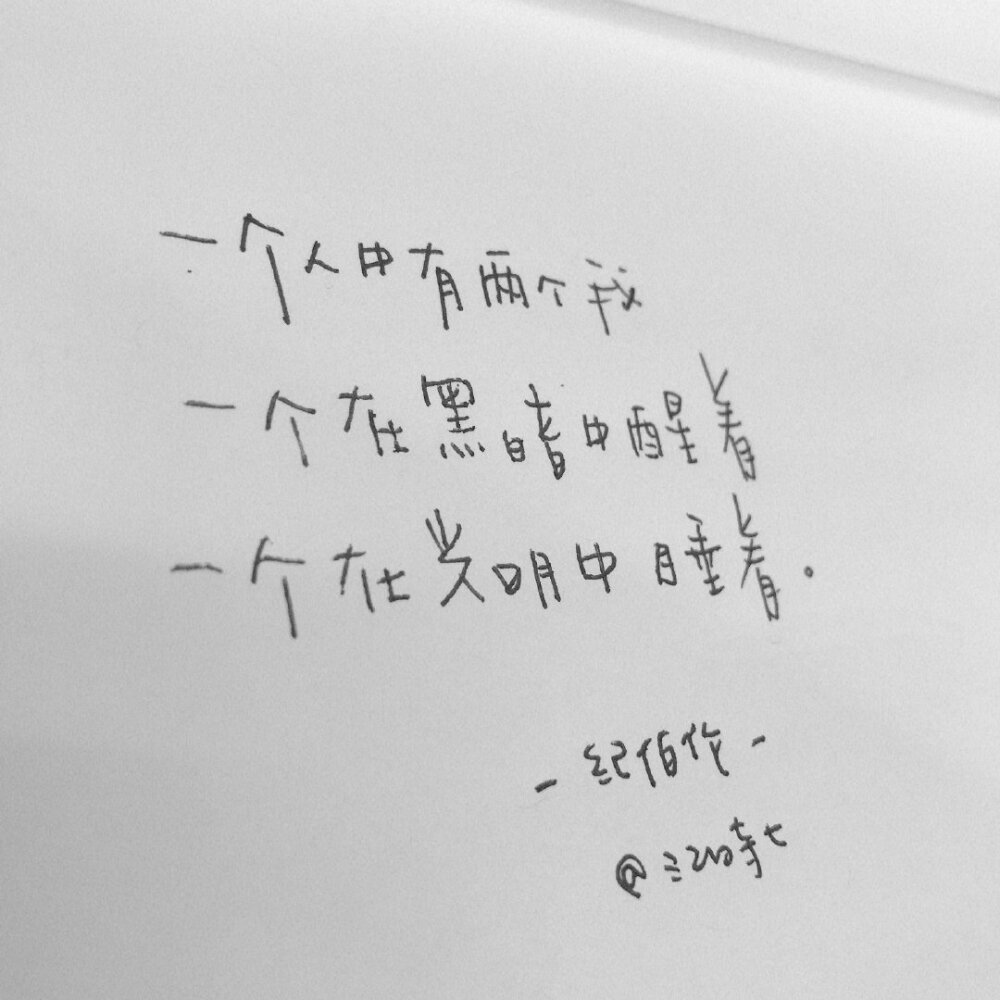 一个人中有两个我
一个在黑暗中醒着
一个在光明中睡着.
- 纪伯伦 -
@